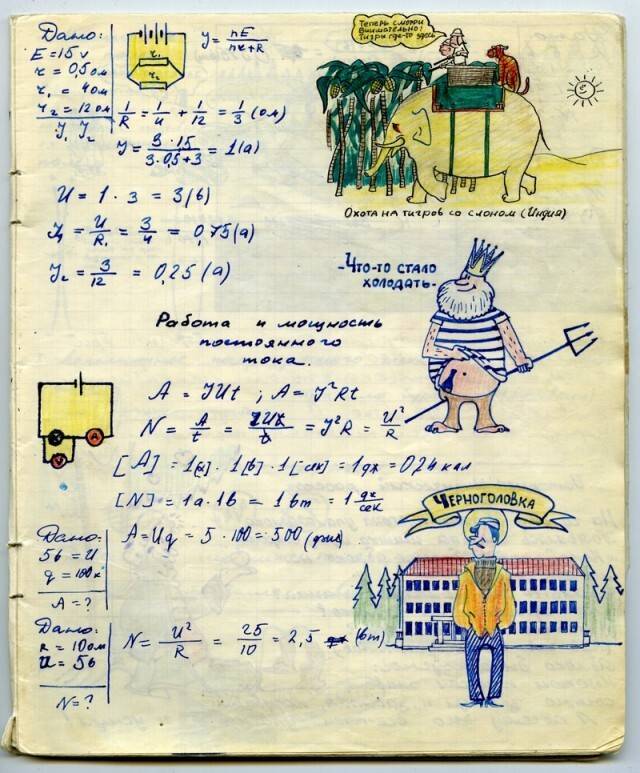 Дано:
E = 15 v
r = 0,5 ом
r₁ = 4 ом
r₂ = 12 ом
J₁ J₂
r₁
r₂
J = nE / nr+R
1/R = 1/4 + 1/12 = 1/3 (ом)
J = 3 · 15 / 3·0,5+3 = 1(а)
U = 1 · 3 = 3(в)
J₁ = U/R₁ = 3/4 = 0,75 (а)
J₂ = 3/12 = 0,25 (а)
Теперь смотри
внимательно:
Тигры где-то здесь
Охота на тигров со слоном (Индия)
-Что-то стало
холодать-
Работа и мощность
постоянного
тока.
A = JUt ; A = J²Rt
N = A/t = JUt/t = J²R = U²/R
А
V
[A] = 1[а] · 1[в] · 1[сек] = 1дж = 0,24 кал
[N] = 1а·1в = 1вт = 1 дж/сек
Черноголовка
Дано:
5в = U
q = 100к
A = ?
A = Uq = 5 · 100 = 500 (дж)
Дано:
R = 10ом
U = 5в
N = ?
N = U²/R = 25/10 = 2,5 (вт)